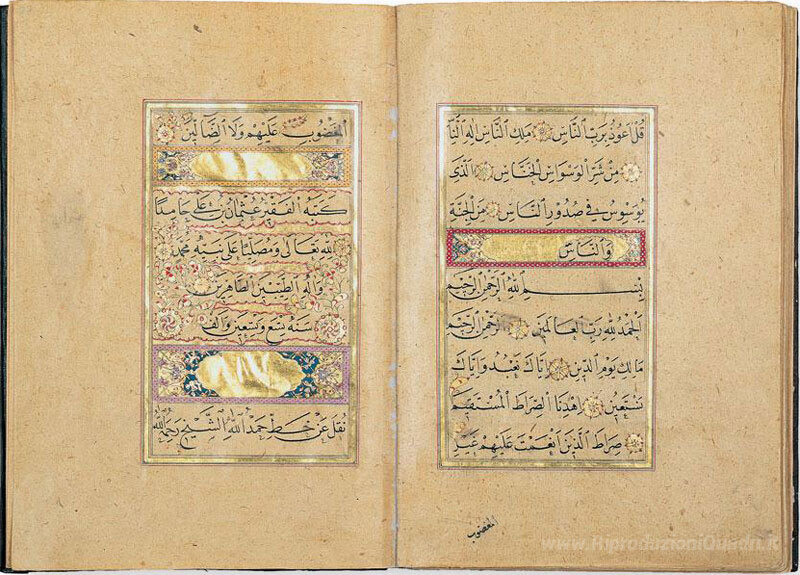 قُلْ اَعُوذُ بِرَبِّ النَّاسِ مَلِكِ النَّاسِ اِلٰهِ النَّاسِ
مِنْ شَرِّ الْوَسْوَاسِ الْخَنَّاسِ اَلَّذِى
يُوَسْوِسُ فِى صُدُورِ النَّاسِ مِنَ الْجِنَّةِ
وَالنَّاسِ
بِسْمِ اللّٰهِ الرَّحْمٰنِ الرَّحِيمِ
اَلْحَمْدُ لِلّٰهِ رَبِّ الْعَالَمِينَ اَلرَّحْمٰنِ الرَّحِيمِ
مَالِكِ يَوْمِ الدِّينِ اِيَّاكَ نَعْبُدُ وَاِيَّاكَ
نَسْتَعِينُ اِهْدِنَا الصِّرَاطَ الْمُسْتَقِيمَ
صِرَاطَ الَّذِينَ اَنْعَمْتَ عَلَيْهِمْ غَيْرِ
المغضوب
الْمَغْضُوبِ عَلَيْهِمْ وَلَا الضَّالِّينَ
كَتَبَهُ الْفَقِيرُ عُثْمَانُ بْنُ عَلِى حَامِدًا
لِلّٰهِ تَعَالٰى وَمُصَلِّيًا عَلٰى نَبِيِّهِ مُحَمَّدٍ
وَاٰلِهِ الطَّيِّبِينَ الطَّاهِرِينَ
سَنَةَ تِسْعٍ وَتِسْعِينَ وَاَلْفٍ
نُقِلَ عَنْ خَطِّ حَمْدُ اللّٰهِ الشَّيْخِ رَحِمَهُ اللّٰهُ
www.RiproduzioniQuadri.it